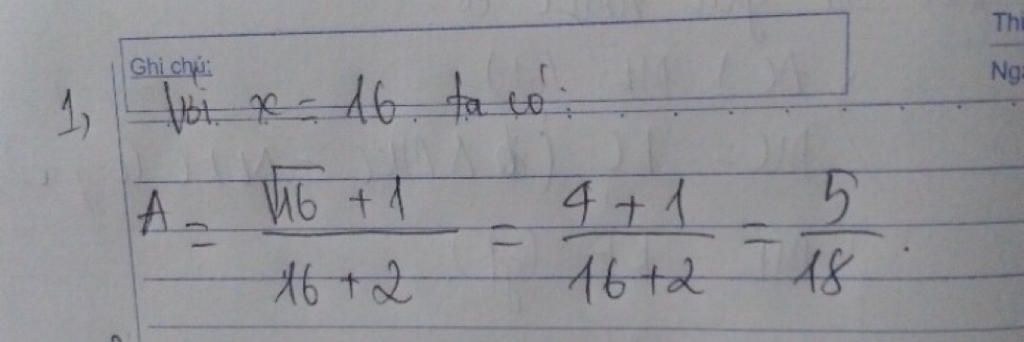 Thi
Ghi chú:
Ngà
1, Với x = 16 ta có:
A = \frac{\sqrt{16} + 1}{16 + 2} = \frac{4 + 1}{16 + 2} = \frac{5}{18}.